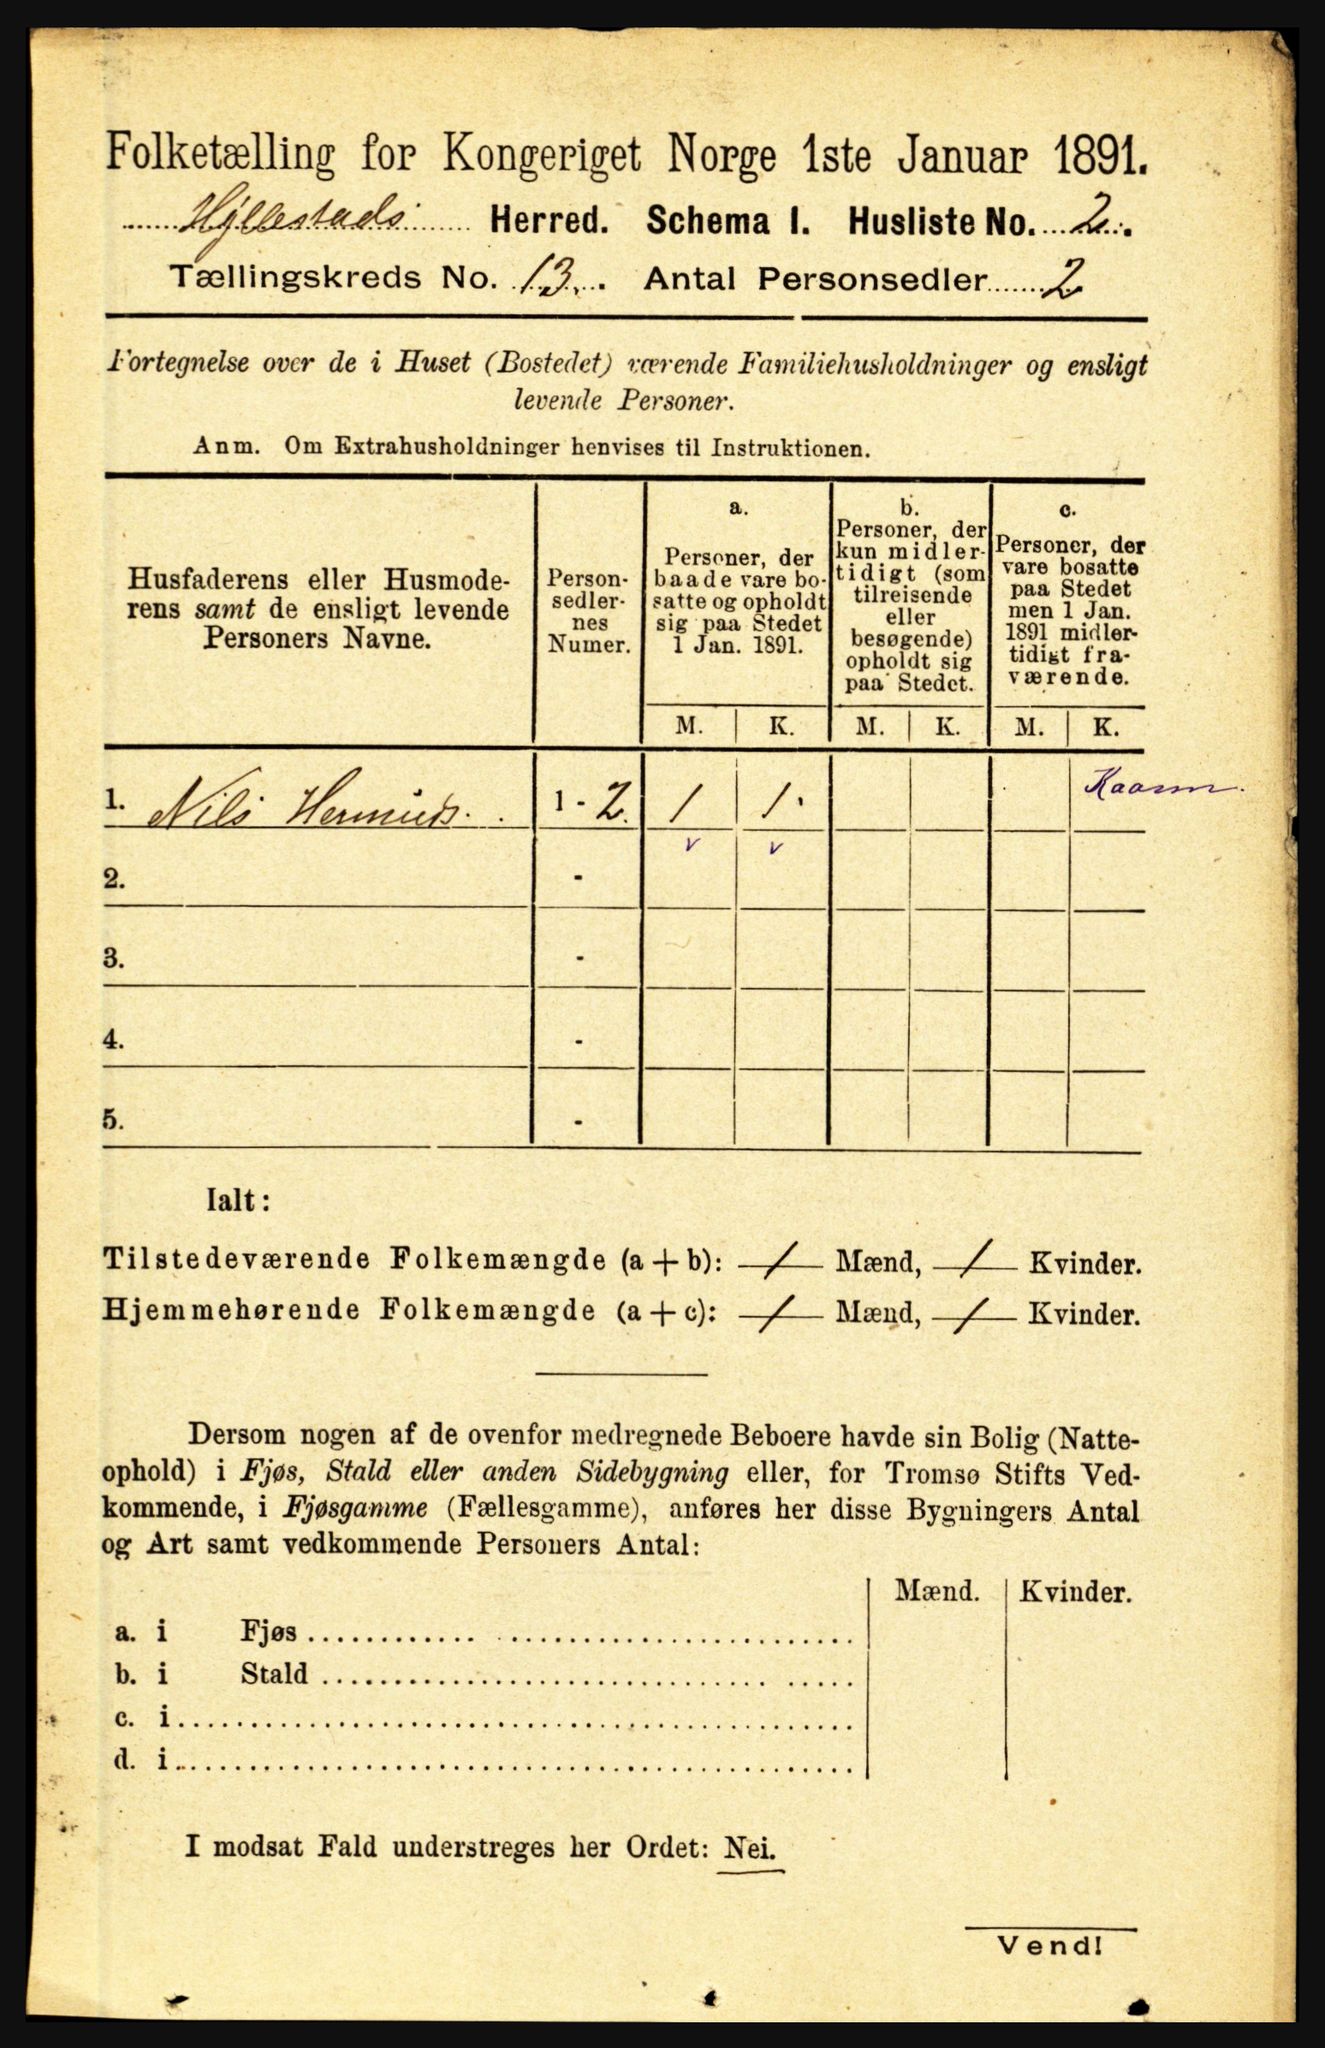 Folketælling for Kongeriget Norge 1ste Januar 1891.
Hyllestads Herred. Schema I. Husliste No. 2.
Tællingskreds No. 13. Antal Personsedler 2
Fortegnelse over de i Huset (Bostedet) værende Familiehusholdninger og ensligt
levende Personer.
Anm. Om Extrahusholdninger henvises til Instruktionen.
Husfaderens eller Husmode-
rens samt de ensligt levende
Personers Navne.
Person-
sedler-
nes
Numer.
a.
Personer, der
baade vare bo-
satte og opholdt
sig paa Stedet
1 Jan. 1891.
b.
Personer, der
kun midler-
tidigt (som
tilreisende
eller
besøgende)
opholdt sig
paa Stedet.
c.
Personer, der
vare bosatte
paa Stedet
men 1 Jan.
1891 midler-
tidigt fra-
værende.
M. K. M. K. M. K.
1. Nils 1 - 2. 1 1.
2. -
3. -
4. -
5. -
Ialt:
Tilstedeværende Folkemængde (a + b): 1 Mænd, 1 Kvinder.
Hjemmehørende Folkemængde (a + c): 1 Mænd, 1 Kvinder.
Dersom nogen af de ovenfor medregnede Beboere havde sin Bolig (Natte-
ophold) i Fjøs, Stald eller anden Sidebygning eller, for Tromsø Stifts Ved-
kommende, i Fjøsgamme (Fællesgamme), anføres her disse Bygningers Antal
og Art samt vedkommende Personers Antal:
Mænd. Kvinder.
a. i Fjøs
b. i Stald
c. i
d. i
I modsat Fald understreges her Ordet: Nei.
Vend!